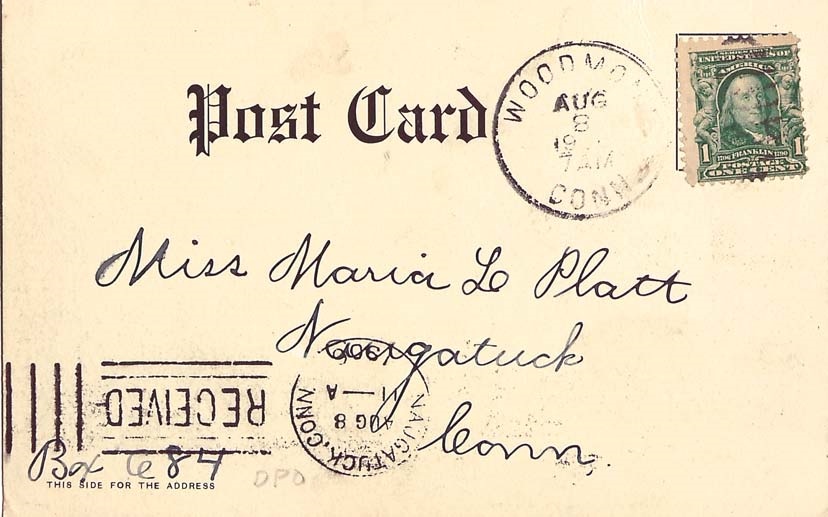 Post Card
WOODMO
AUG
8
19
7 AM
CONN
UNITED STATES OF
AMERICA
1 1706 FRANKLIN 1790 1
POSTAGE
ONE CENT
Miss Maria L Platt
Naugatuck
Conn.
RECEIVED
NAUGATUCK, CONN
AUG 8
11—A
Box 684
THIS SIDE FOR THE ADDRESS
DPO